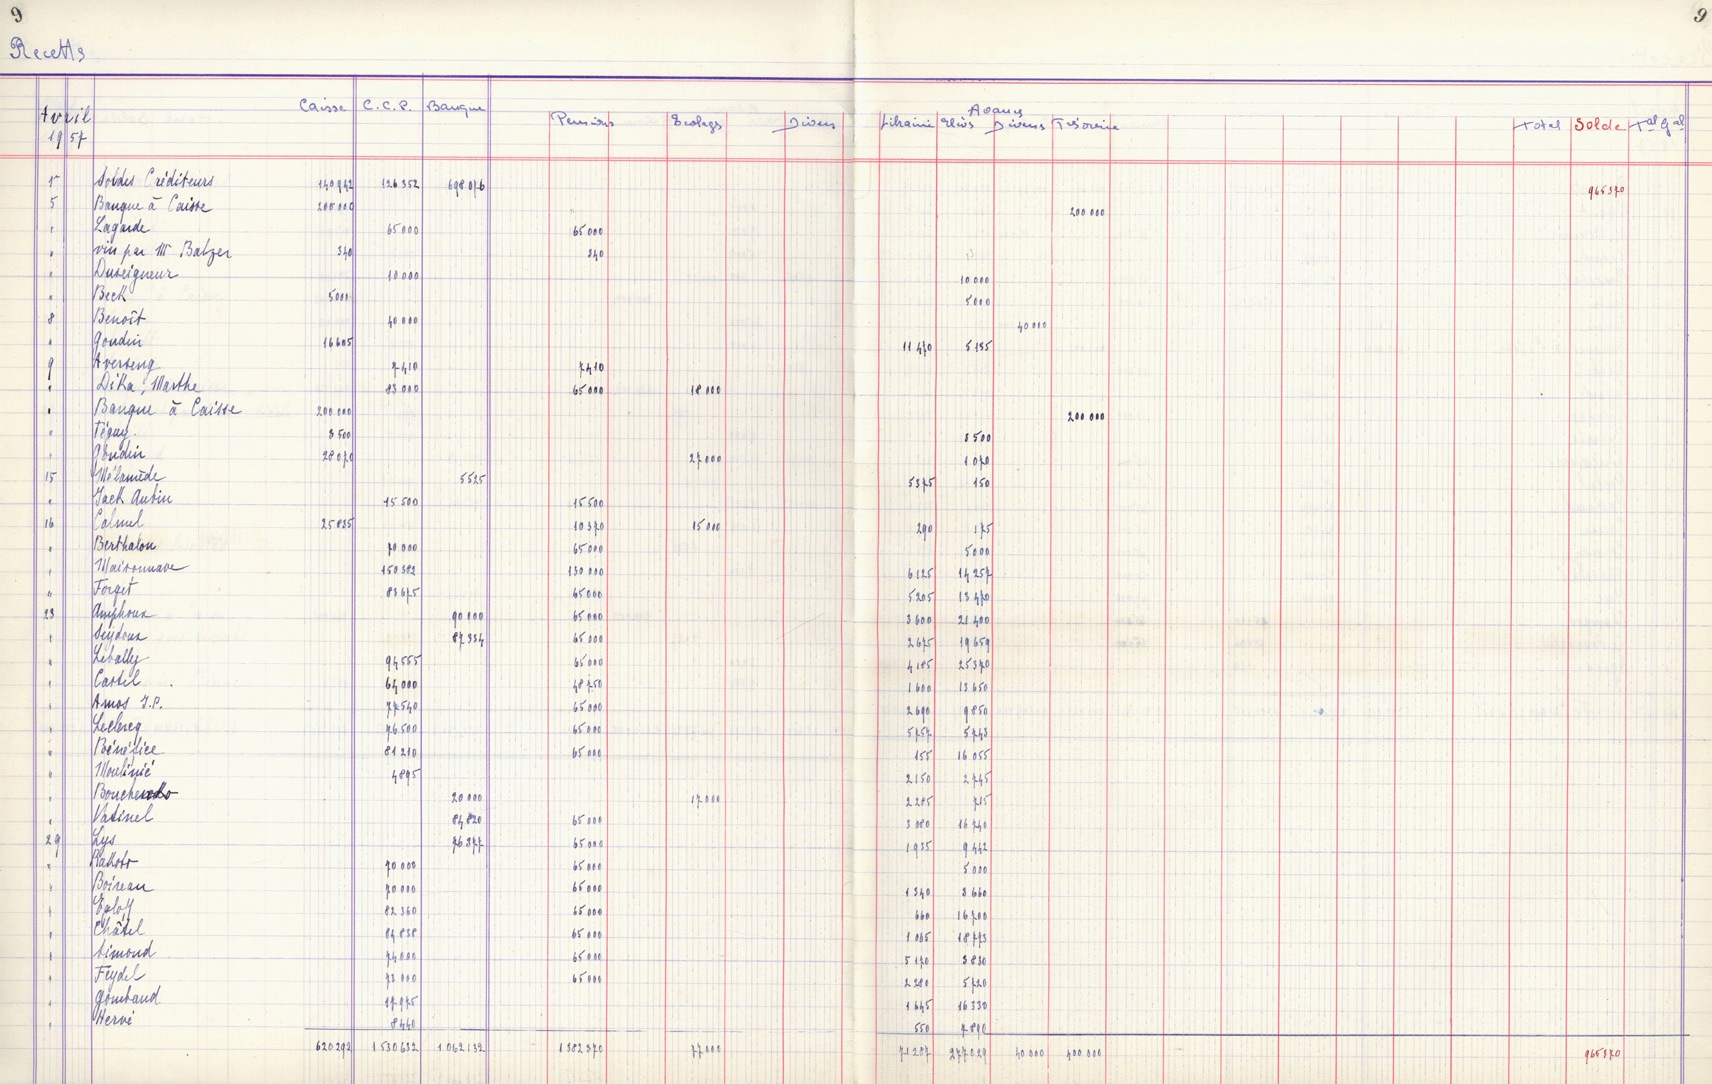 9 9
Recettes
Avril 1957 Caisse C.C.P. Banque Pensions Ecolages Divers Librairie Elèves Avances Divers Trésorerie Total Solde Tal Gal
1er Soldes Créditeurs 140 942 126 352 698 076 965 370
5 Banque à Caisse 200 000 200 000
" Lagarde 65 000 65 000
" vin par Mr Balzer 340 340
" Duseigneur 10.000 10 000
" Beck 5000 5000
8 Benoît 40 000 40 000
" Goudin 16 605 11 470 5 135
9 Averseng 7 410 7 410
" Dika, Marthe 83 000 65 000 18 000
" Banque à Caisse 200 000 200 000
" Téguy. 3 500 3 500
" Goudin 28 070 27 000 1 070
15 Mélamède 5525 5375 150
" Jack Aubin 15 500 15 500
16 Calmel 25 835 10 370 15 000 290 175
" Berthalon 70 000 65 000 5000
" Maisonnave 150 382 130 000 6 125 14 257
" Forget 83 675 65 000 5 205 13 470
23 Amphoux 90 000 65 000 3 600 21 400
" Seydoux 87 334 65 000 2 675 19 659
" Libally 94 555 65 000 4 185 25 370
" Castel 64 000 48 750 1 600 13 650
" Amos J.P. 77 540 65 000 2 690 9 850
" Leclercq 76 500 65 000 5 757 5 743
" Bénéfice 81 210 65 000 155 16 055
" Moulinié 4 895 2 150 2 745
" 20 000 17 000 2 285 715
" Vatinel 84 820 65 000 3 080 16 740
29 Lys 76 377 65 000 1 935 9 442
" Rakoto 70 000 65 000 5 000
" Boireau 70 000 65 000 1 340 3 660
" 82 360 65 000 660 16 700
" Châtel 84 838 65 000 1 065 18 773
" Simond 74 000 65 000 5 170 3 830
" Feydel 73 000 65 000 2 280 5 720
" Gombaud 17 975 1 645 16 330
" Hervé 8 440 550 7 890
620 292 1 530 632 1 062 132 1 382 370 77 000 71 287 277 029 40 000 400 000 965 370